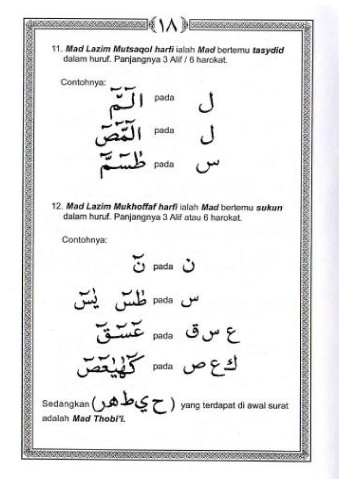 ١٨
11. Mad Lazim Mutsaqol harfi ialah Mad bertemu tasydid
dalam huruf. Panjangnya 3 Alif / 6 harokat.
Contohnya:
ل pada الٓمّٓ
ل pada الٓمّٓصٓ
س pada طٰسٓمّٓ
12. Mad Lazim Mukhoffaf harfi ialah Mad bertemu sukun
dalam huruf. Panjangnya 3 Alif atau 6 harokat.
Contohnya:
ن pada نٓ
س pada طٰسٓ يٰسٓ
ع س ق pada عٓسٓقٓ
ك ع ص pada كٓهٰيٰعٓصٓ
Sedangkan (حي طهر) yang terdapat di awal surat
adalah Mad Thobi'i.